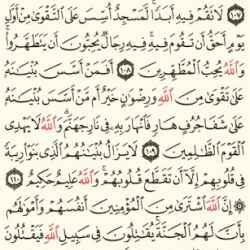 ١٠٧ لَا تَقُمْ فِيهِ أَبَدًا لَّمَسْجِدٌ أُسِّسَ عَلَى التَّقْوَىٰ مِنْ أَوَّلِ
يَوْمٍ أَحَقُّ أَن تَقُومَ فِيهِ فِيهِ رِجَالٌ يُحِبُّونَ أَن يَتَطَهَّرُوا
وَاللَّهُ يُحِبُّ الْمُطَّهِّرِينَ ١٠٨ أَفَمَنْ أَسَّسَ بُنْيَانَهُ
عَلَىٰ تَقْوَىٰ مِنَ اللَّهِ وَرِضْوَانٍ خَيْرٌ أَم مَّنْ أَسَّسَ بُنْيَانَهُ
عَلَىٰ شَفَا جُرُفٍ هَارٍ فَانْهَارَ بِهِ فِي نَارِ جَهَنَّمَ وَاللَّهُ لَا يَهْدِي
الْقَوْمَ الظَّالِمِينَ ١٠٩ لَا يَزَالُ بُنْيَانُهُمُ الَّذِي بَنَوْا رِيبَةً
فِي قُلُوبِهِمْ إِلَّا أَن تَقَطَّعَ قُلُوبُهُمْ وَاللَّهُ عَلِيمٌ حَكِيمٌ ١١٠
إِنَّ اللَّهَ اشْتَرَىٰ مِنَ الْمُؤْمِنِينَ أَنفُسَهُمْ وَأَمْوَالَهُم
بِأَنَّ لَهُمُ الْجَنَّةَ يُقَاتِلُونَ فِي سَبِيلِ اللَّهِ فَيَقْتُلُونَ